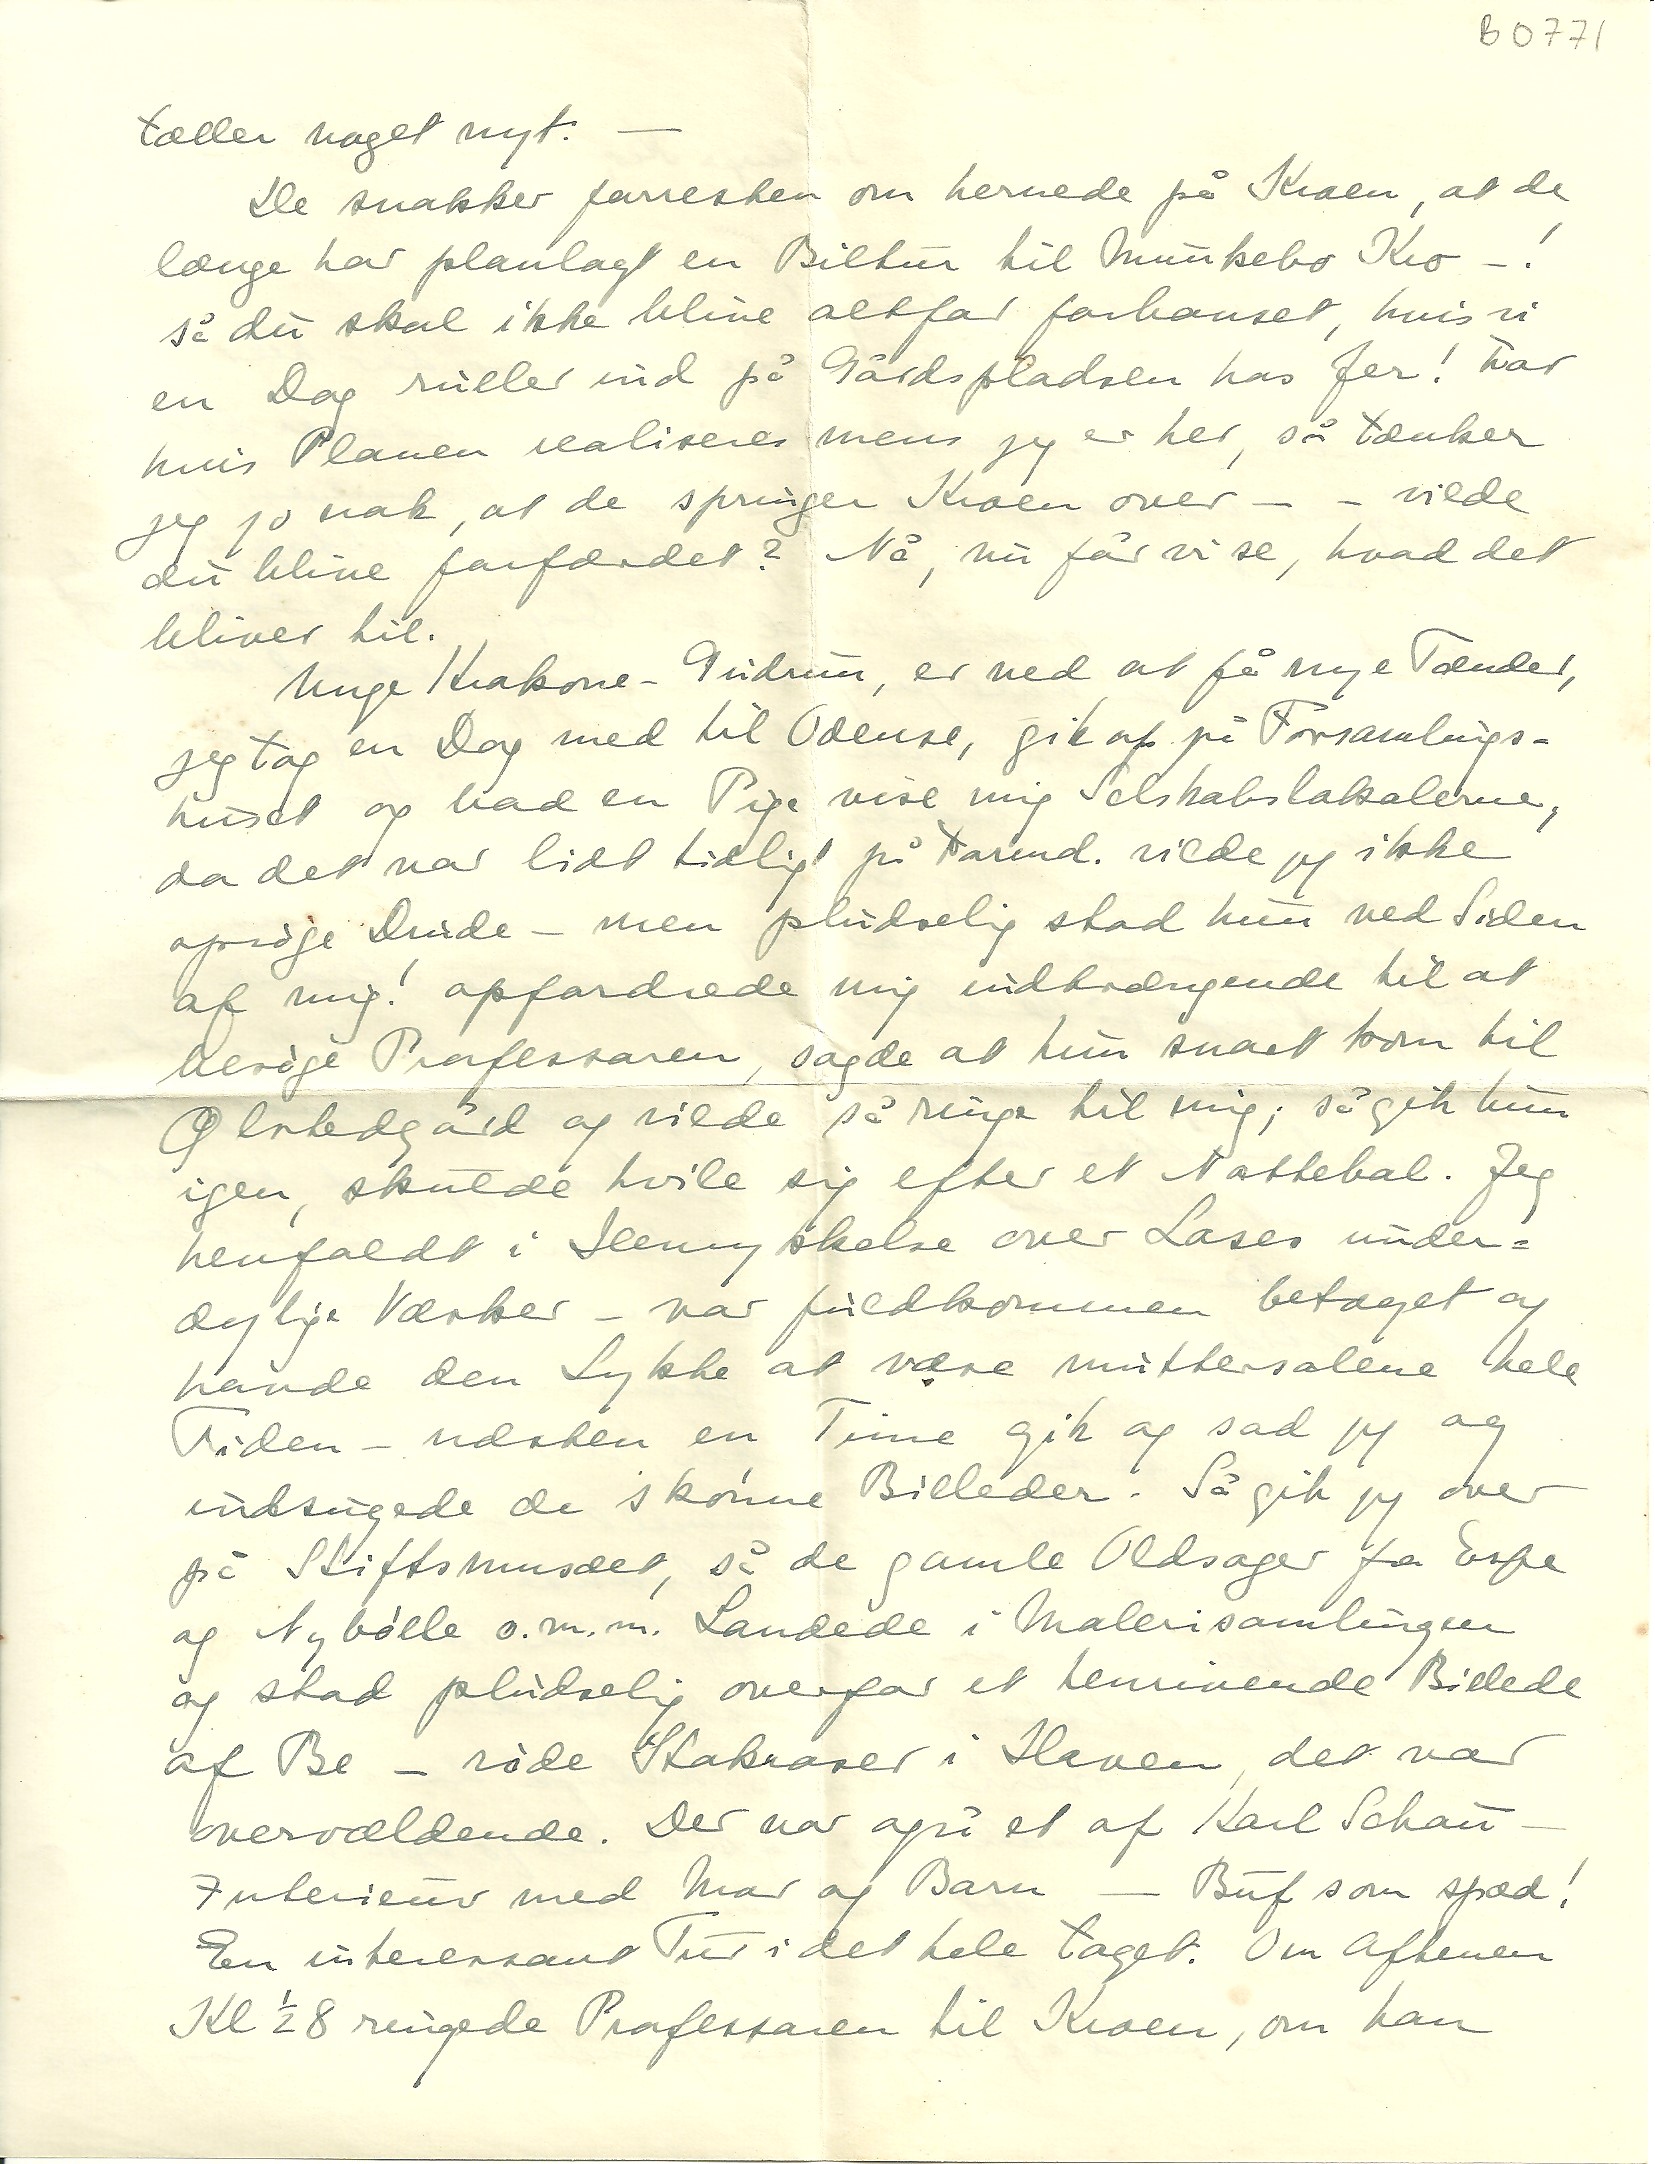 B0771
tæller noget nyt. —
De snakker forresten om hernede på Kroen, at de
længe har planlagt en Biltur til Munkebo Kro – !
så du skal ikke blive altfor forbauset, hvis vi
en Dag ruller ind på Gårdspladsen hos Jer! For
hvis Planen realiseres mens jeg er her, så tænker
jeg jo nok, at de springer Kroen over – – vilde
du blive forfærdet? Nå, nu får vi se, hvad det
bliver til.
Unge Krakone - Gudrun, er ved at få nye Tænder,
jeg tog en Dag med til Odense, gik op på Forsamlings-
huset og bad en Pige vise mig Selskabslokalerne,
da det var lidt tidligt på Formd. vilde jeg ikke
opsøge Drude – men pludselig stod hun ved Siden
af mig! opfordrede mig indtrængende til at
besøge Professoren, sagde at hun snart kom til
Ølstedgård og vilde så ringe til mig; så gik hun
igen, skulde hvile sig efter et Nattebal. Jeg
henfaldt i Henrykkelse over Lases under=
dejlige Værker – var fuldkommen betaget og
havde den Lykke at være muttersalene hele
Tiden – næsten en Time gik og sad jeg og
indsugede de skønne Billeder. Så gik jeg over
på Stiftsmusæet, så de gamle Oldsager fra Espe
og Nybølle o.m.m. Landede i Malerisamlingen
og stod pludselig overfor et henrivende Billede
af Be – røde Stokroser i Haven, det var
overvældende. Der var også et af Karl Schou –
Interieur med Mor og Barn — Buf som spæd!
En interessant Tur i det hele taget. Om Aftenen
Kl ½ 8 ringede Professoren til Kroen, om han